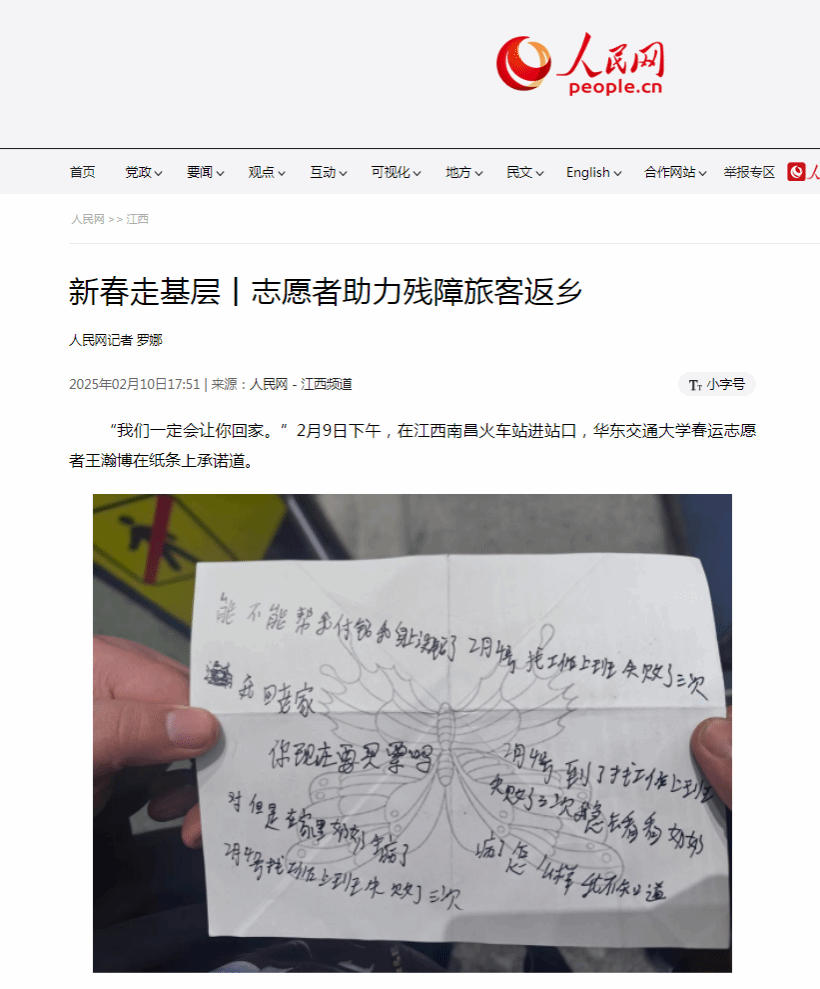 人民网
people.cn
首页 党政 要闻 观点 互动 可视化 地方 民文 English 合作网站 举报专区 人
人民网 >> 江西
新春走基层丨志愿者助力残障旅客返乡
人民网记者 罗娜
2025年02月10日17:51 | 来源：人民网－江西频道
TT 小字号
“我们一定会让你回家。”2月9日下午，在江西南昌火车站进站口，华东交通大学春运志愿
者王瀚博在纸条上承诺道。
能不能帮我付钱我身上没钱了 2月4号 找工作上班失败了三次
我回老家
你现在要买票吗
对 但是在家里奶奶病了
2月4号找工作上班失败了三次
2月4号到了找工作上班
失败了三次 急去看看奶奶
病了怎么样 我不知道